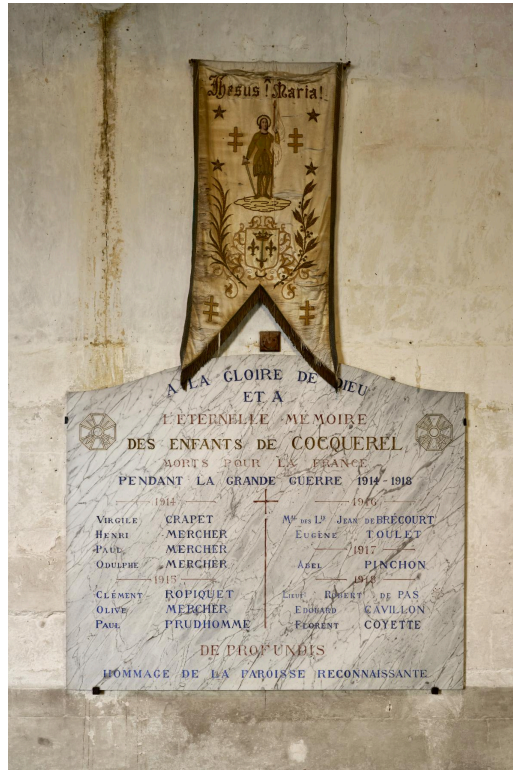 Jhesus! Maria!
A LA GLOIRE DE DIEU
ET A
L'ETERNELLE MEMOIRE
DES ENFANTS DE COCQUEREL
MORTS POUR LA FRANCE
PENDANT LA GRANDE GUERRE 1914-1918
1914
VIRGILE CRAPET
HENRI MERCHER
PAUL MERCHER
ODULPHE MERCHER
1915
CLÉMENT ROPIQUET
OLIVE MERCHER
PAUL PRUDHOMME
1916
JEAN DE BRÉCOURT
EUGÈNE TOULET
1917
ABEL PINCHON
1918
LIEUT ROBERT DE PAS
EDOUARD CAVILLON
FLORENT COYETTE
DE PROFUNDIS
HOMMAGE DE LA PAROISSE RECONNAISSANTE